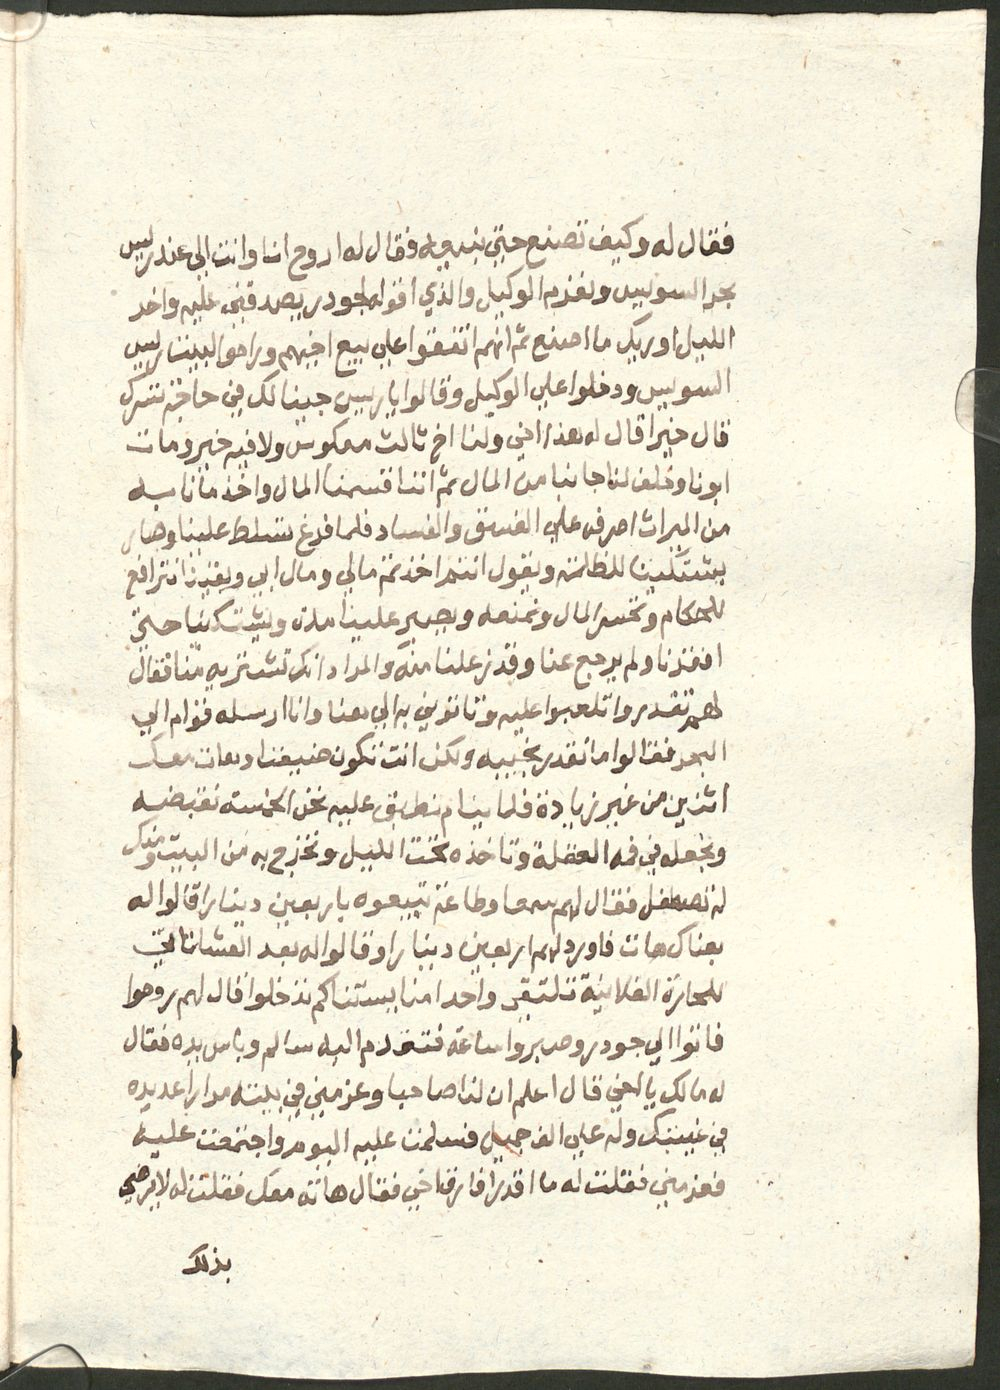 فقال له وكيف تصنع حتي نبيعه فقال له اروح انا وانت الي عند ريس
بحر السويس ونعزم الوكيل والذي اقوله لجودر يصدقني عليه واخر
الليل اوريك ما اصنع ثم انهم اتفقوا علي بيع اخيهم وراحوا لبيت ريس
السويس ودخلوا علي الوكيل وقالوا يا ريس جينا لك في حاجة تسرك
قال خيرا قال له هذا اخي ولنا اخ ثالث معكوس ولا فيه خير ومات
ابونا وخلف لنا جانبا من المال ثم اننا قسمنا المال واخذ ما نابه
من الميراث اصرفه علي الفسق والفساد فلما افرغ تسلط علينا وصار
يشتكينا للظالمة ويقول انتم اخذتم مالي ومال ابي وبقينا نترافع
للحكام ونخسر المال ونمنعه ويصبر علينا مدة ويشتكينا حتي
افقرنا ولم يرجع عنا وقد زعلنا منه والمراد انك تشتريه منا فقال
لهم تقدروا تلعبوا عليه وتاتوني به الي هنا وانا ارسله قوام الي
البحر فقالوا ما نقدر نجيبه ولكن انت تكون ضيفنا وهات معك
اثنين من غير زيادة فلما ينام نطبق عليه نحن الخمسة نقبضه
ونجعله في فمه العقلة وتاخذه تحت الليل وتخرج به من البيت ومنك
له تصطفل فقال لهم سمعا وطاعة تبيعوه باربعين دينارا قالوا له
بعناك هات فاورد لهم اربعين دينارا وقالوا له بعد العشا تاتي
للحارة الفلانية تلتقي واحدا منا يستناكم تدخلوا قال لهم روحوا
فاتوا الي جودر وصبروا ساعة فتقدم اليه سالم وباس يده فقال
له مالك يا اخي قال اعلم ان لنا صاحبا وعزمني في بيته مرارا عديده
في غيبتك وله علي الف جميل فسلمت عليه اليوم واجتمعت عليه
فعزمني فقلت له ما اقدر افارق اخي فقال هاته معك فقلت له لا يرضي
بذلك